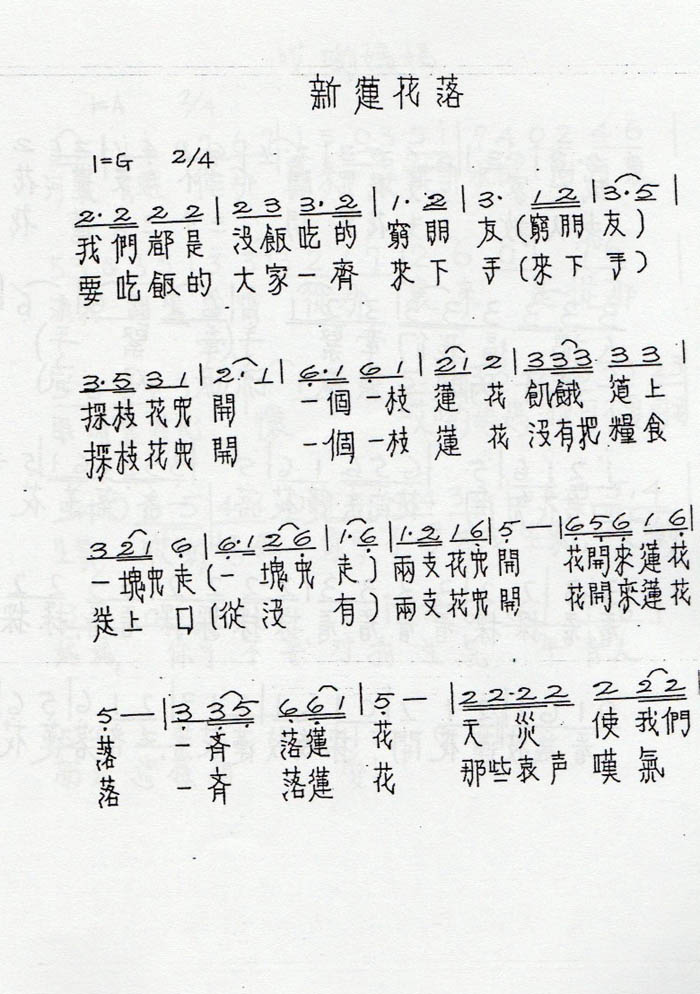 新蓮花落
1=G 2/4
2·2 2 2 | 2 3 3·2 | 1· 2 3· 1 2 | 3·5 |
我們都是 沒飯吃的 窮朋友(窮朋友)
要吃飯的 大家一齊 來下手(來下手)
3·5 3 1 | 2· 1 | 6·1 6 1 | 2 1 2 | 3 3 3 3 3 |
採枝花兒開 一個一枝蓮花 飢餓道上
採枝花兒開 一個一枝蓮花 沒有把糧食
3 2 1 6 | 6·1 2 6 | 1· 6 | 1·2 1 6 | 5 — | 6 5 6 1 6 |
一塊兒走(一塊兒走)兩支花兒開 花開來蓮花
從上口(從沒有)兩支花兒開 花開來蓮花
5 — | 3 3 5 6 6 1 | 5 — | 2 2·2 2 2 2 2 |
落 一齐落蓮花 天災使我們
落 一齐落蓮花 那些哀声嘆氣